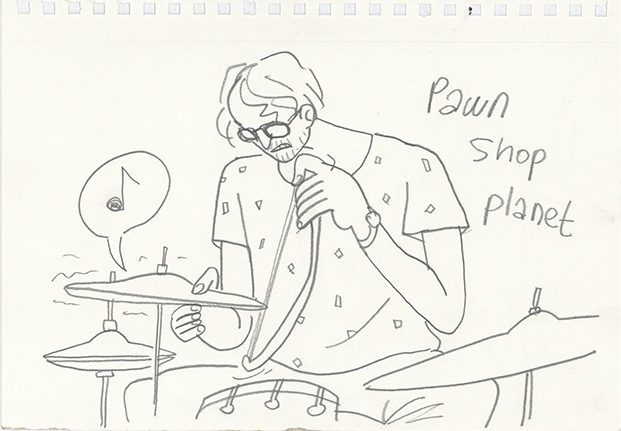 Pawn
Shop
planet